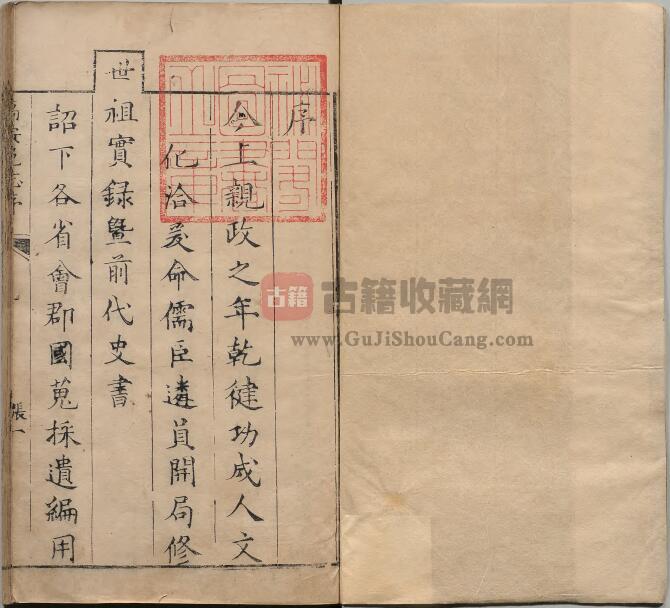 序
今上親政之年乾徤功成人文
化洽爰命儒臣遴員開局修
世祖實録暨前代史書
詔下各省會郡國蒐採遺編用
張一
古籍
古籍收藏網
www.GuJiShouCang.com